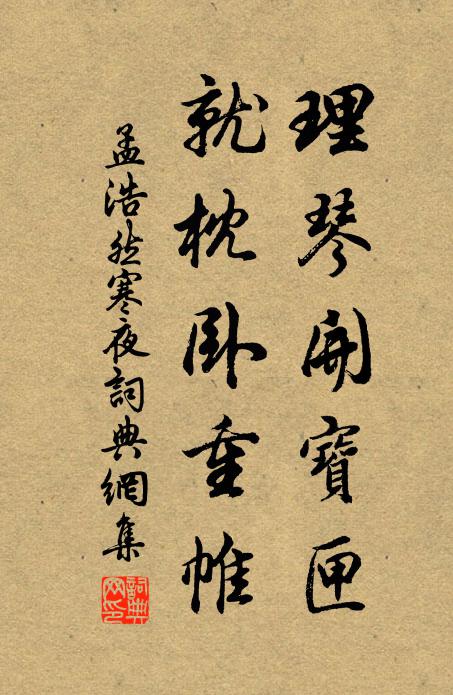 理琴開寶匣
就枕臥重帷
孟浩然寒夜詞典網集
詞典網印